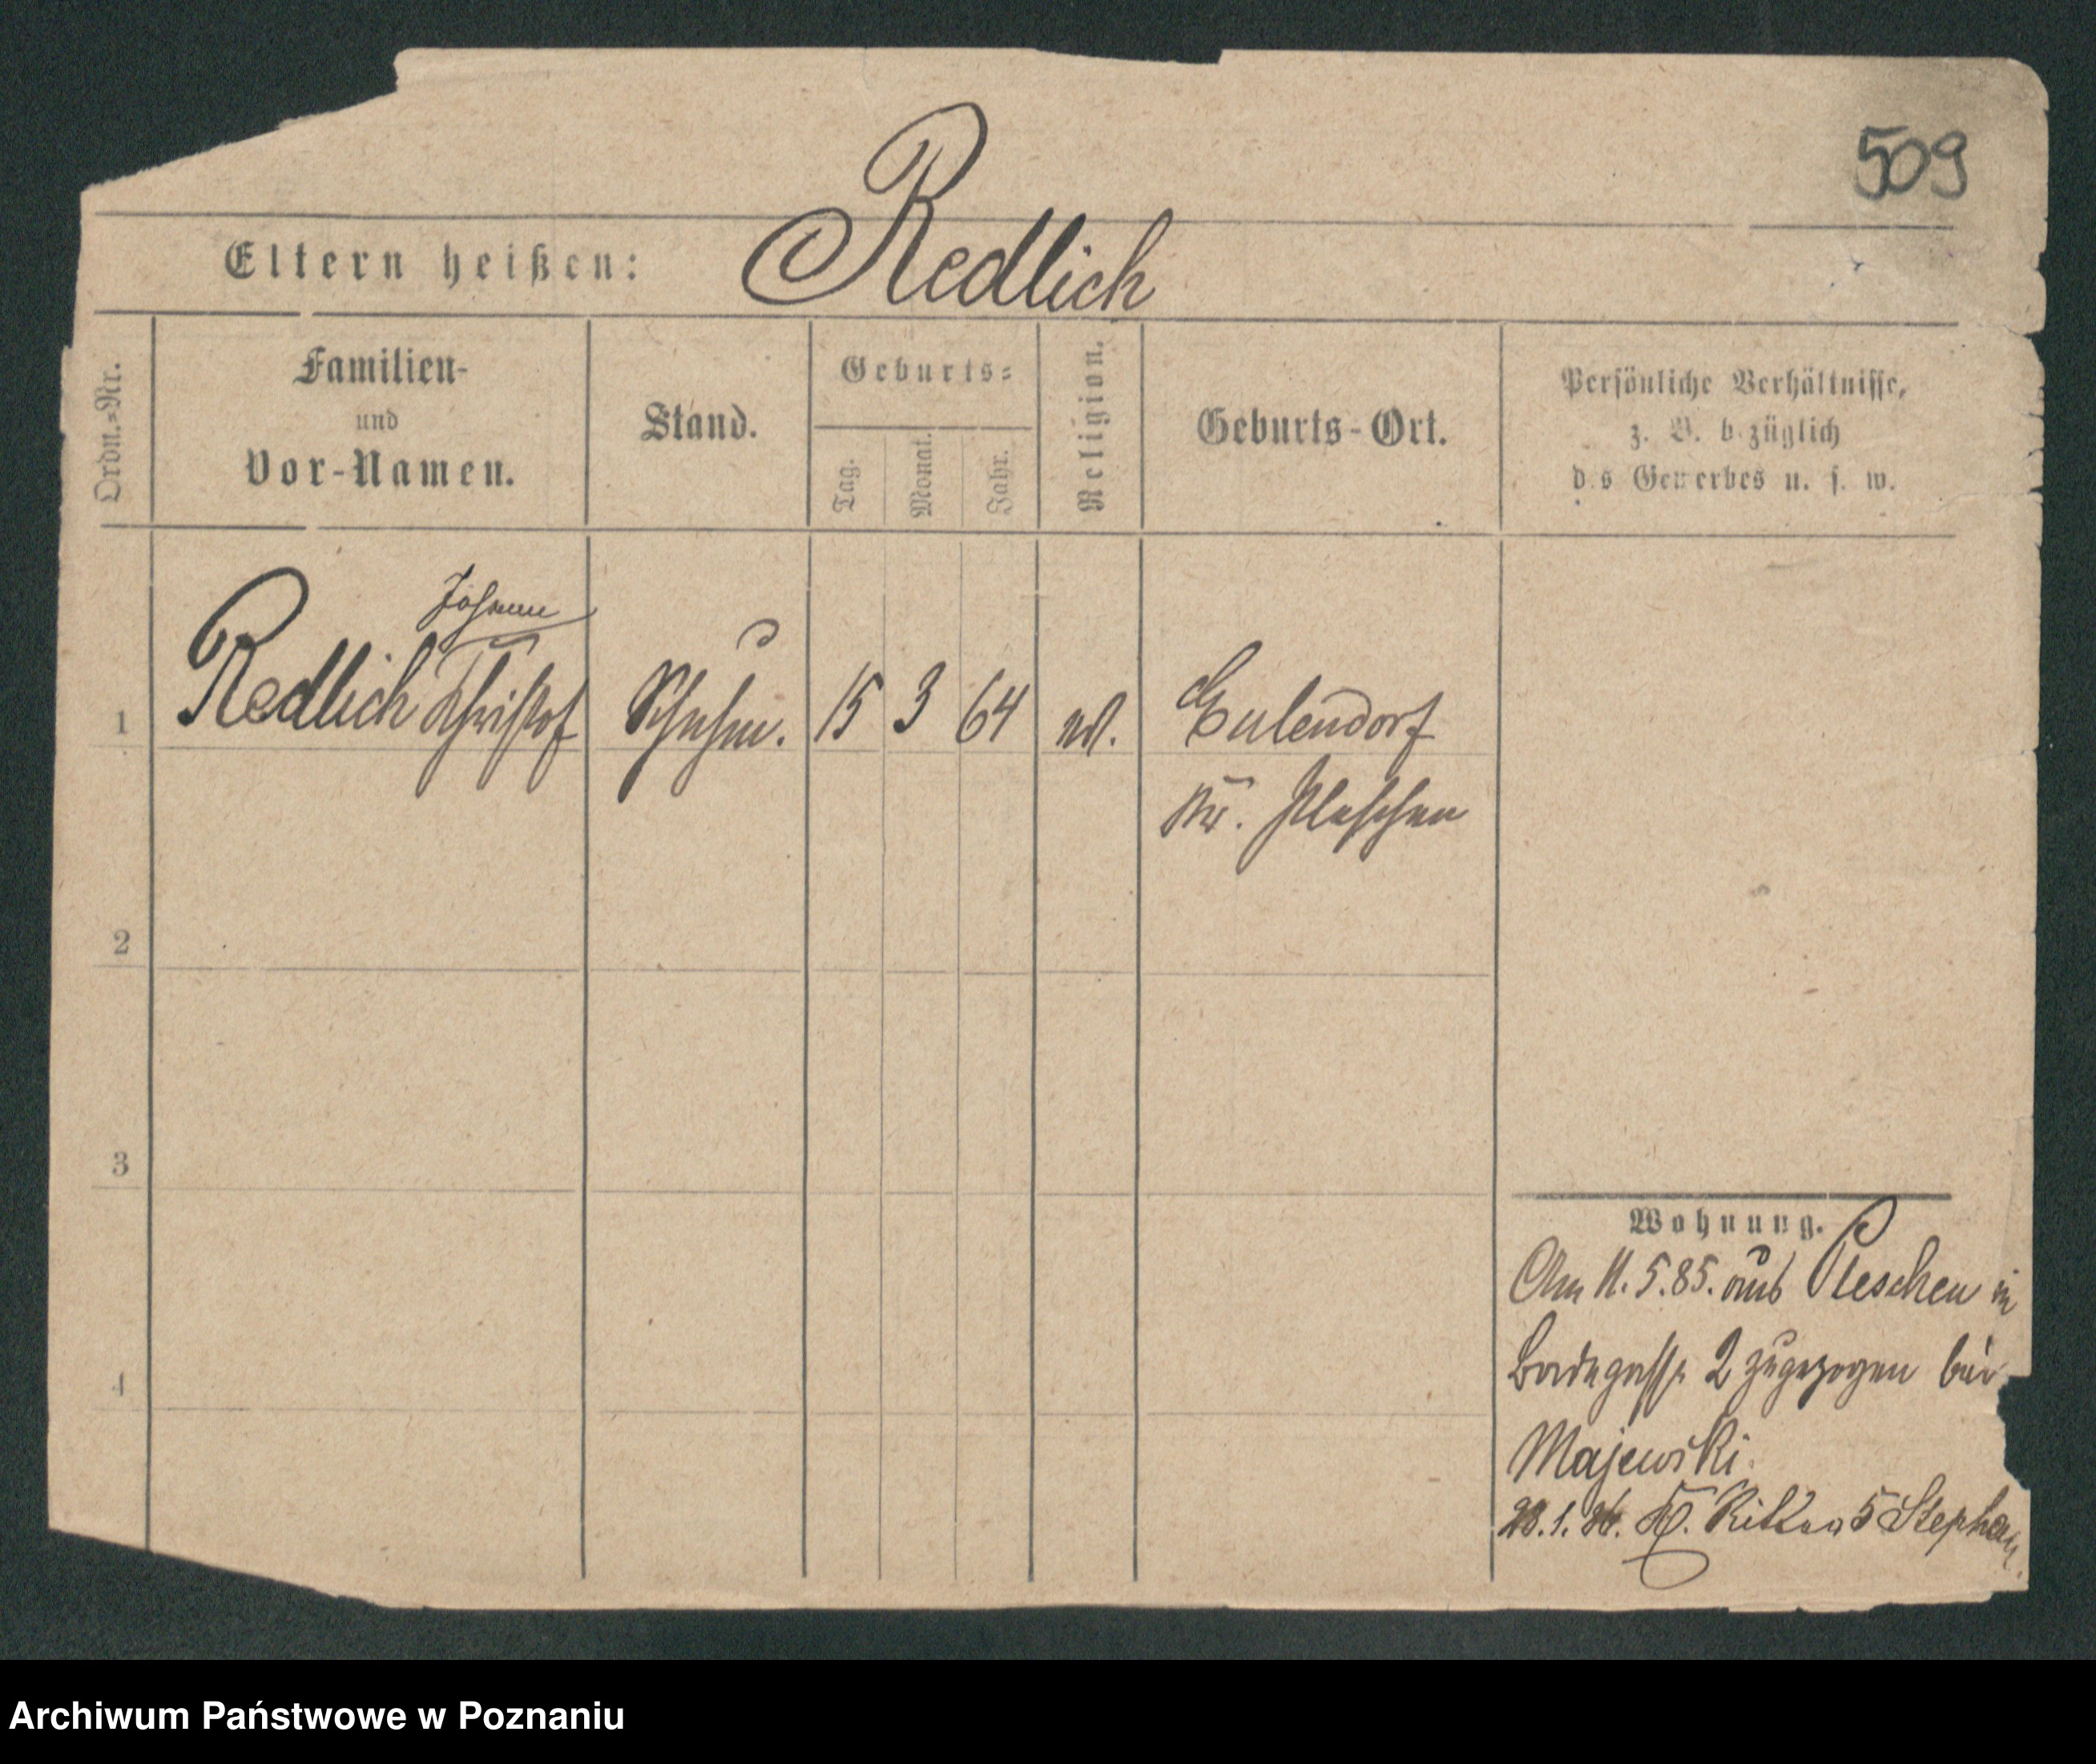 509
Eltern heißen: Redlich
Ordn.=Nr.
Familien-
und
Vor-Namen.
Stand.
Geburts=
Tag.
Monat.
Jahr.
Religion.
Geburts-Ort.
Persönliche Verhältnisse,
z. B. bezüglich
des Gewerbes u. s. w.
Johann
1 Redlich Christof Schuhm. 15 3 64 Eulendorf
Kr. Pleschen
2
3
4
Wohnung.
Am 11.5.85. aus Pleschen in
2 zugezogen bei
Majewski.
5 Stephan
Archiwum Państwowe w Poznaniu